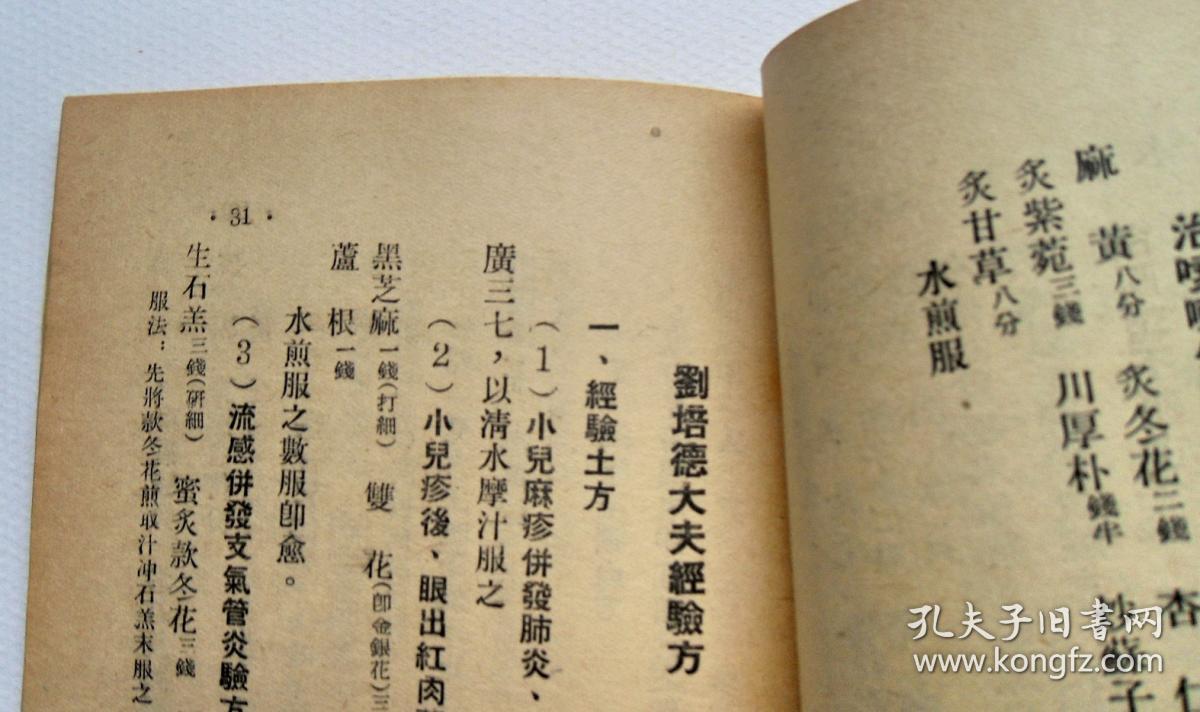 麻　黃八分　炙冬花二錢　杏仁
炙紫菀三錢　川厚朴錢半
炙甘草八分
水煎服
劉培德大夫經驗方
一、經驗土方
（1）小兒麻疹併發肺炎、
廣三七，以清水摩汁服之
（2）小兒疹後、眼出紅肉
黑芝麻一錢(打細)　雙　花(卽金銀花)三
蘆　根一錢
水煎服之數服卽愈。
（3）流感併發支氣管炎驗方
生石羔三錢(研細)　蜜炙款冬花三錢
服法：先將款冬花煎取汁冲石羔末服之
·31·
孔夫子旧书网
www.kongfz.com